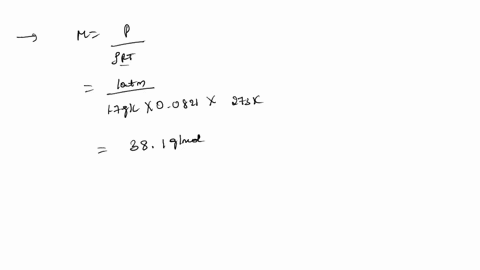 → M = P
ρRT
= 1atm
1.7g/L × 0.0821 × 273K
= 38.1 g/mol